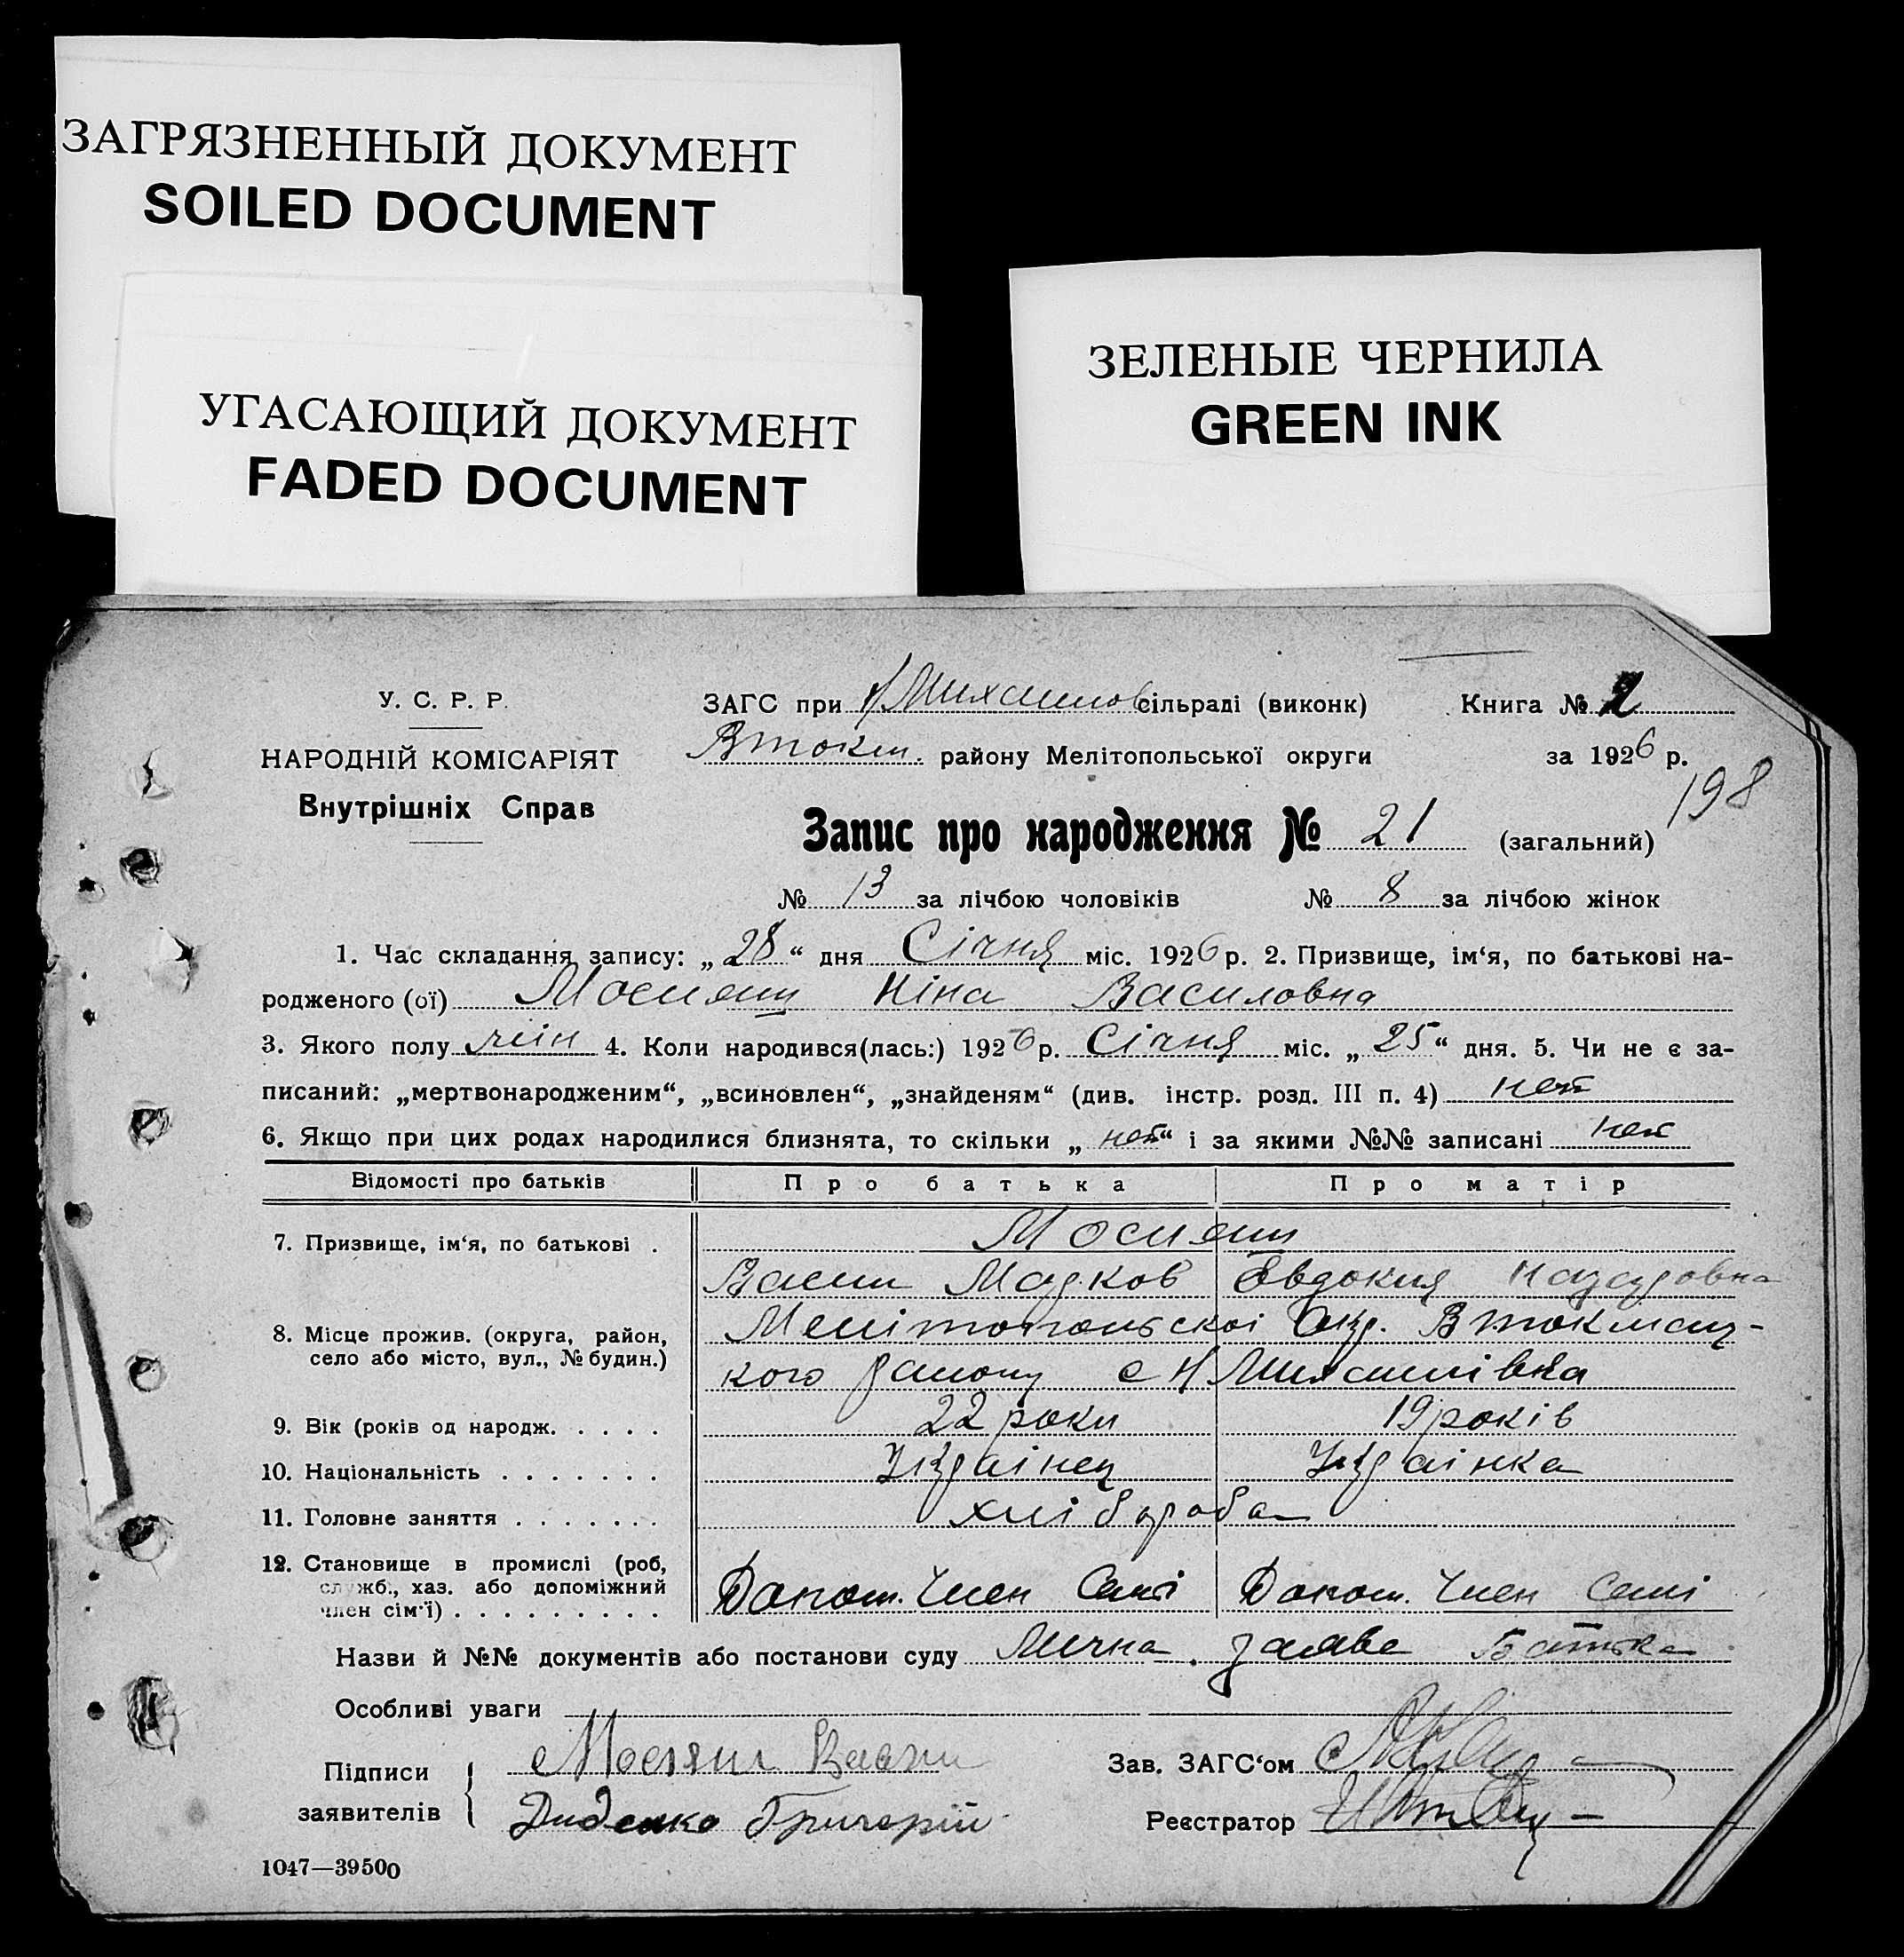 ЗАГРЯЗНЕННЫЙ ДОКУМЕНТ
SOILED DOCUMENT
УГАСАЮЩИЙ ДОКУМЕНТ
FADED DOCUMENT
ЗЕЛЕНЫЕ ЧЕРНИЛА
GREEN INK
У. С. Р. Р.
НАРОДНІЙ КОМІСАРІЯТ
Внутрішніх Справ
ЗАГС при Н Михайлов сільраді (виконк)
Втокм. району Мелітопольської округи
Книга №
за 1926 р.
198
Запис про народження № 21 (загальний)
№ 13 за лічбою чоловіків № 8 за лічбою жінок
1. Час складання запису: „28“ дня Січня міс. 1926 р. 2. Призвище, ім‘я, по батькові на-
родженого (ої) Ніна Василовна
3. Якого полу жін 4. Коли народився(лась:) 1926 р. Січня міс. „25“ дня. 5. Чи не є за-
писаний: „мертвонародженим“, „всиновлен“, „знайденям“ (див. інстр. розд. III п. 4) нет
6. Якщо при цих родах народилися близнята, то скільки „нет“ і за якими №№ записані нет
Відомості про батьків Про батька Про матір
7. Призвище, ім‘я, по батькові .
Васил Марков Евдокия Назаровна
8. Місце прожив. (округа, район,
село або місто, вул., № будин.)
Мелітопольскоі Окр. Втокмац-
кого району с Н Михайлівка
9. Вік (років од народж. . . . . 22 роки 19 років
10. Національність . . . . . . . Украінец Украінка
11. Головне заняття . . . . . . . хлібороба
12. Становище в промислі (роб,
служб., хаз. або допоміжний
член сім‘ї) . . . . . . . . .
Допом. Член Семі Допом. Член Семі
Назви й №№ документів або постанови суду Лична заява Батька
Особливі уваги
Підписи
заявителів
Диденко Григорій
Зав. ЗАГС‘ом
Реєстратор
1047—39500